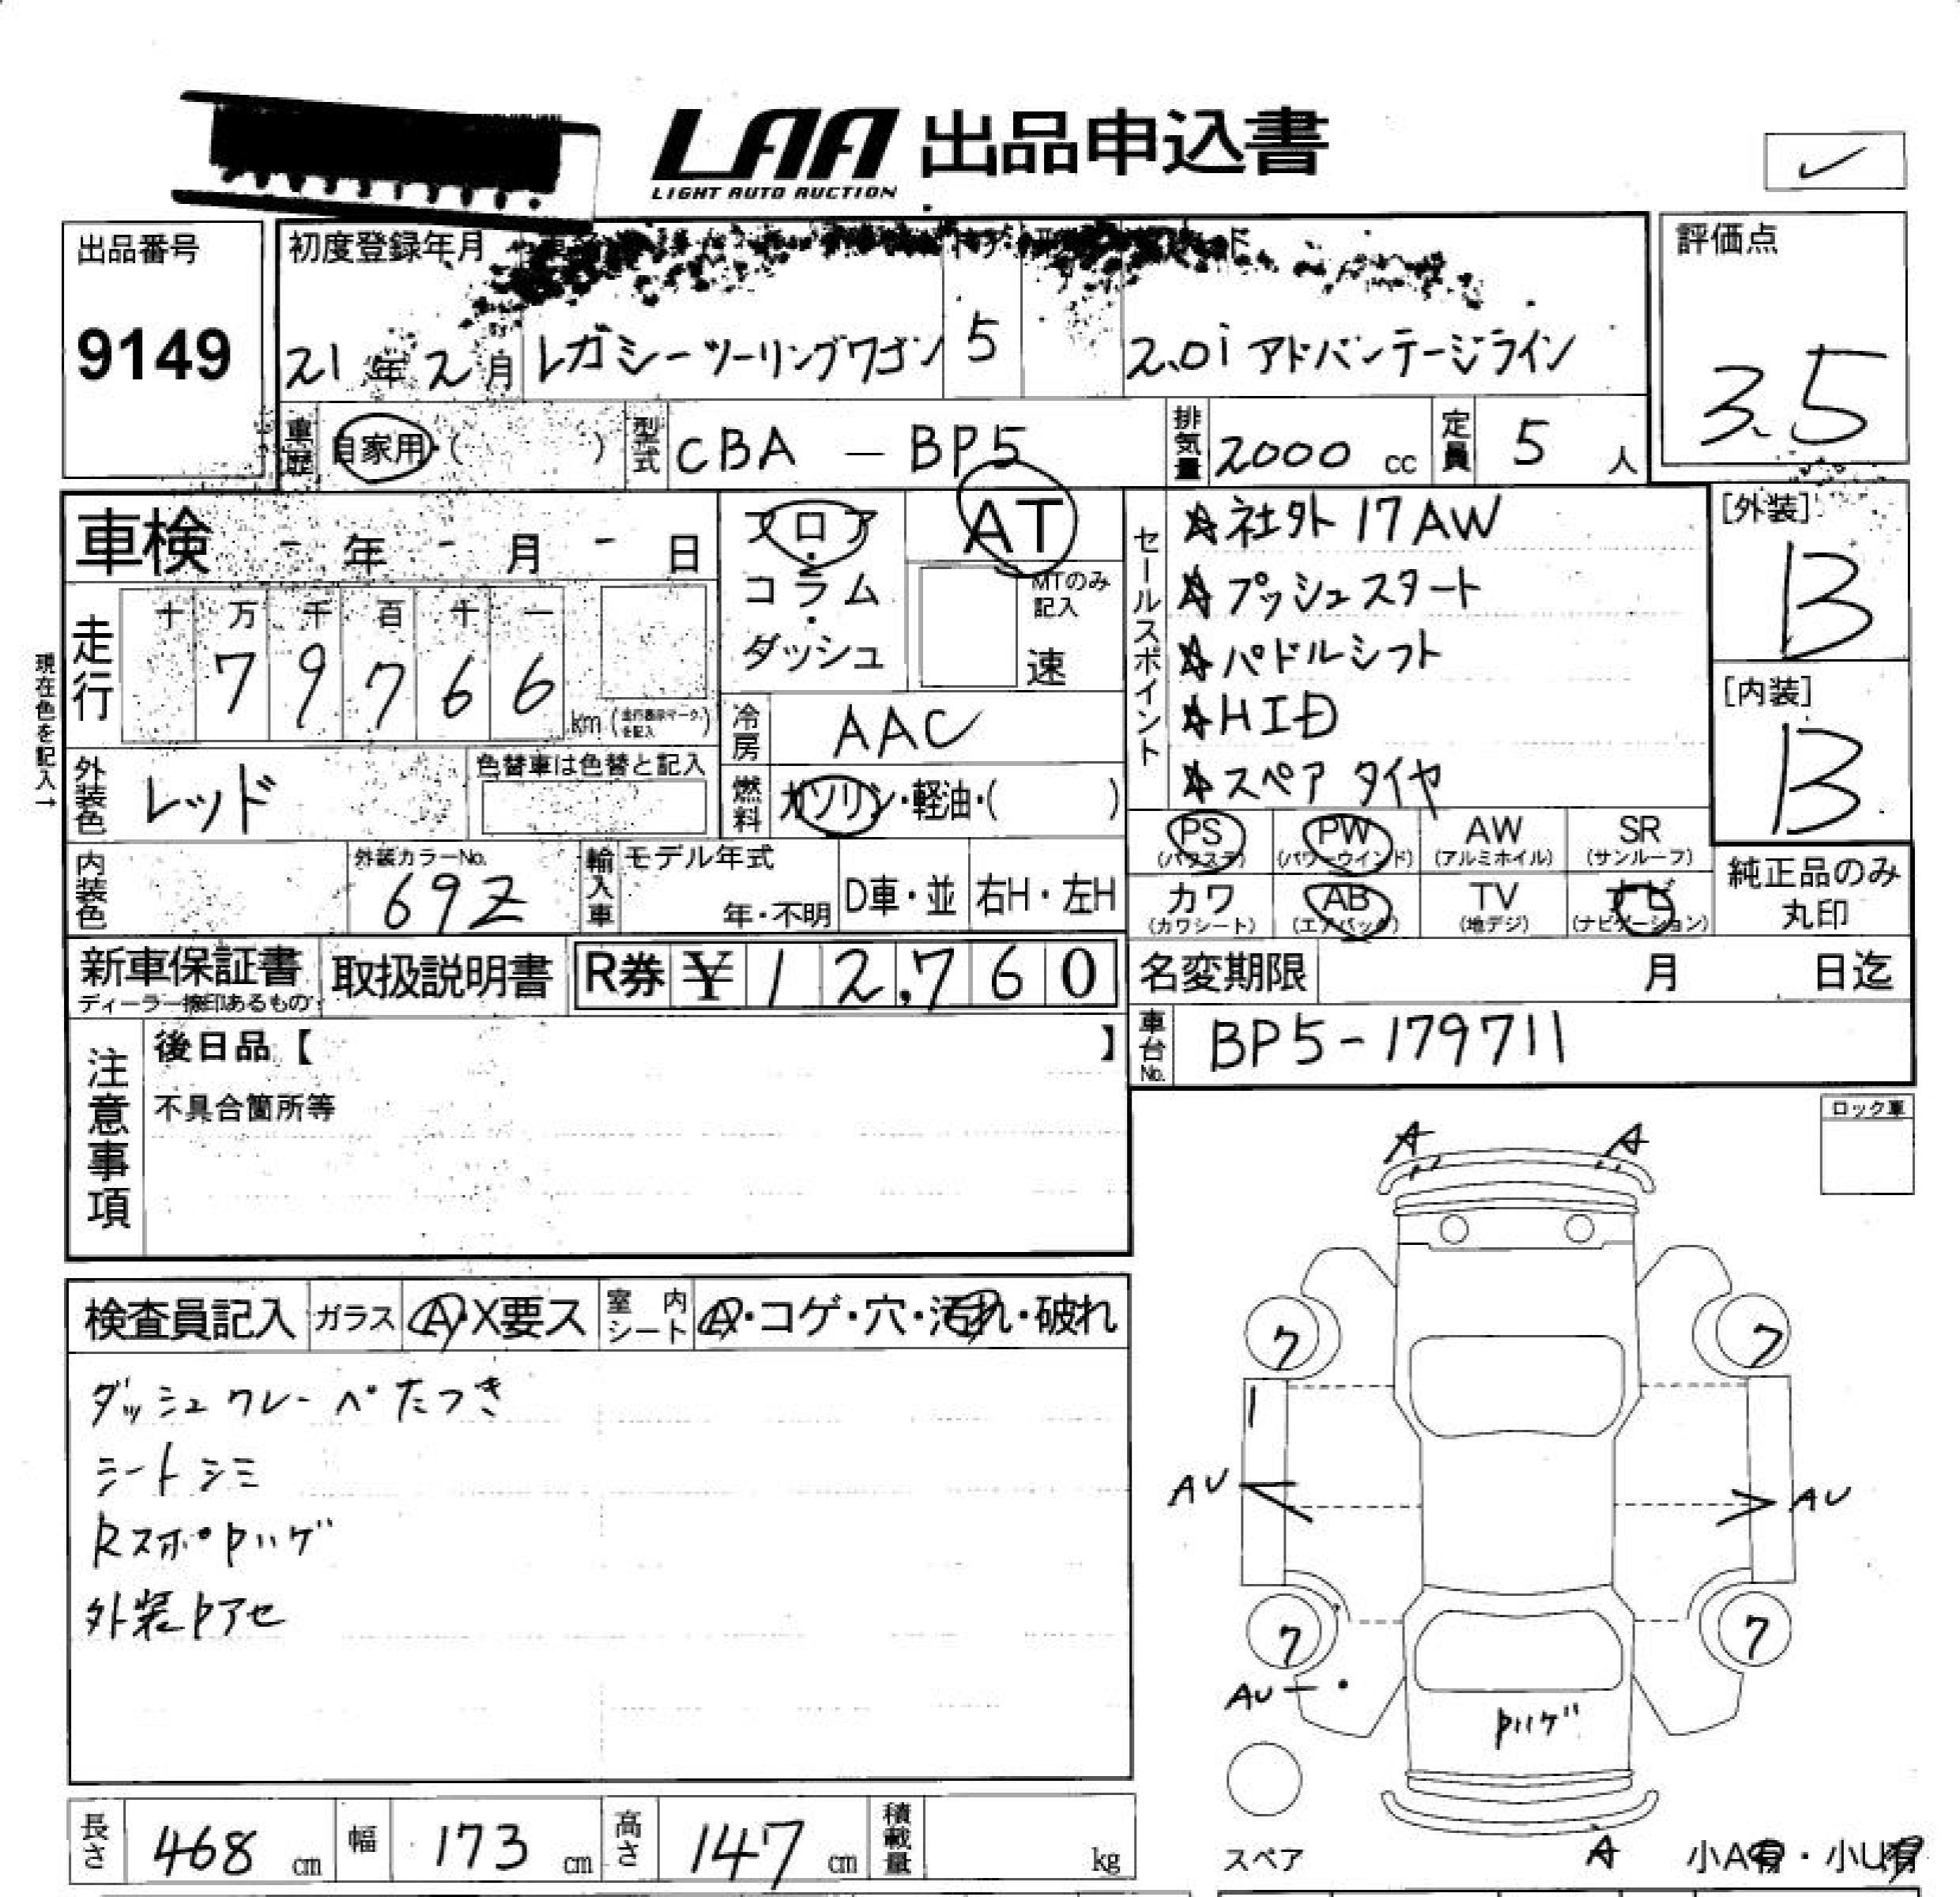 LAA 出品申込書
LIGHT AUTO AUCTION
出品番号
9149
初度登録年月
21年2月
レガシーツーリングワゴン
5
2.0i アドバンテージライン
評価点
3.5
車歴 自家用・( )
型式 CBA - BP5
排気量 2000 cc
定員 5 人
車検 - 年 - 月 - 日
フロア・コラム・ダッシュ
AT
MTのみ記入
速
セールスポイント
☆社外 17AW
☆プッシュスタート
☆パドルシフト
☆HID
☆スペアタイヤ
[外装]
B
[内装]
B
現在色を記入→
走行
十 万 千 百 十 一
7 9 7 6 6
km (走行表示マークを記入)
冷房 AAC
外装色 レッド
色替車は色替と記入
燃料 ガソリン・軽油・( )
PS (パワステ)
PW (パワーウインド)
AW (アルミホイル)
SR (サンルーフ)
カワ (カワシート)
AB (エアバック)
TV (地デジ)
ナビ (ナビゲーション)
純正品のみ丸印
内装色
外装カラーNo.
69Z
輸入車
モデル年式
年・不明
D車・並
右H・左H
新車保証書
ディーラー捺印あるもの
取扱説明書
R券 ¥12,760
名変期限 月 日迄
車台No. BP5-179711
注意事項
後日品【 】
不具合箇所等
ロック車
検査員記入
ガラス A・X要ス
室内シート A・コゲ・穴・汚れ・破れ
ダッシュクレーベたつき
シートシミ
Rスポ
外装
A A
7 7
AU AU
7 7
AU
スペア
A
小A有・小U有
長さ 468 cm
幅 173 cm
高さ 147 cm
積載量 kg